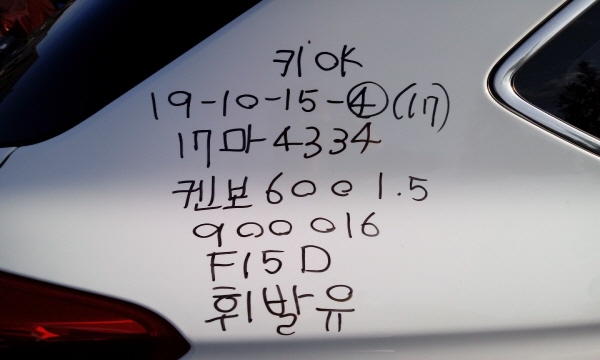 키OK
19-10-15-④(17)
17마4334
켄보600 1.5
900016
F15D
휘발유